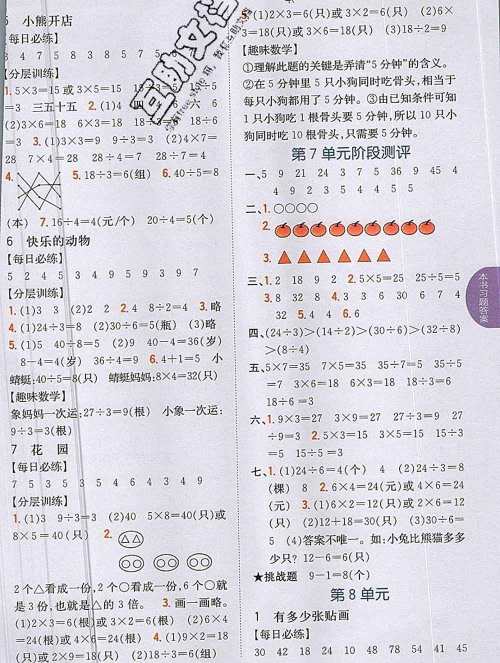 5 小熊开店
【每日必练】
3 4 7 5 8 3 5
【分层训练】
1.5×3=15或3×5=15
=3 三五十五 2.(1)4 六 6
(2)3×6=18 6×3=18
=3 3.(1)3×3=9 9÷3=3 (2)4×7=
28 7×4=28 28÷4=7 28÷7=4
4. 5.18÷3=6(组) 6.40÷5=8
(本) 7.16÷4=4(元/个) 20÷4=5(个)
6 快乐的动物
【每日必练】
5 2 4 5 3 4 9 5 9 3 9 7
【分层训练】
1.(1)3 3 (2)2 2 2.4 8÷2=4 3.略
4.(1)24÷3=8 (2)30÷6=5(瓶) (3)略
5.(1)5 40÷8=5 (2)9 40-4=36(岁)
8-4=4(岁) 36÷4=9 6.4+1=5 小
蜻蜓:40÷5=8(只) 蜻蜓妈妈:8×4=32(只)
【趣味数学】
象妈妈一次运:27÷3=9(根) 小象一次运:
9÷3=3(根)
7 花 园
【每日必练】
7 5 3 5 3 5 4 6 4 3 4 9
【分层训练】
1.(1)3 9÷3=3 (2)40 5×8=40(只)或
8×5=40(只) 2.
2个△看成一份,2个○看成一份,6个○就
是3份,也就是△的3倍。 3.画一画略。
(1)2×3=6(根)或3×2=6(根) (2)6×4
=24(根)或4×6=24(根) 4.(1)9×2=18
(只)或2×9=18(只) (2)18÷3=6(只)
(1)2×3=6(只)或3×2=6(只) (2)6×
3=18(只)或3×6=18(只) (3)18÷2=9
【趣味数学】
①理解此题的关键是弄清“5分钟”的含义。
②在5分钟里5只小狗同时吃骨头,相当于
每只小狗都用了5分钟。③由已知条件可知
1只小狗吃1根骨头要5分钟,所以10只小
狗同时吃10根骨头,只需要5分钟。
第7单元阶段测评
一、5 9 21 24 3 7 5 36 9 45 4
4 9 2 3 5 4 5 5
二、1.○○○○
2.
3.
三、1.2 18 9 2 2.5×5=25 25÷5=5
3.8 32 8 4.3 3 6 30 6 7 4
32 5.4 4 6.6
四、(24÷3)>(14÷2)>(30÷6)>(32÷8)
>(8÷4)
五、5×7=35 7×5=35 35÷7=5 35÷5
=7 3×6=18 6×3=18 18÷3=6
18÷6=3
六、1.9×3=27 3×9=27 27÷3=9 27
÷9=3 2.5×3=15 3×5=15 15÷3
=5 15÷5=3
七、1.(1)24÷6=4(个) 4 (2)24÷3=8
(棵) 8 2.6×4=24(元)或4×6=24
(元) 3.(1)6×2=12(只)或2×6=12
(只) (2)12+18=30(只) (3)30÷6=
5 (4)答案不唯一。如:小兔比熊猫多多
少只? 12-6=6(只)
★挑战题 9-1=8(个)
第8单元
1 有多少张贴画
【每日必练】
30 42 18 24 10 48 78 54 41 45
本书习题答案
互助文档